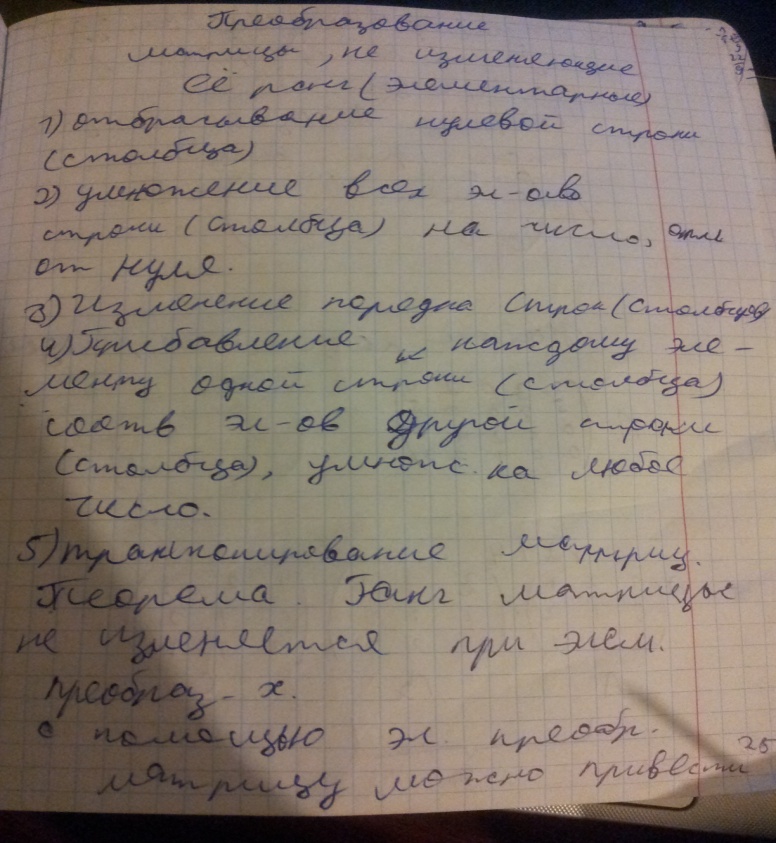 Преобразование
матрицы, не изменяющие
её ранг (элементарные)
1) отбрасывание нулевой строки
(столбца)
2) умножение всех эл-ов
строки (столбца) на число, отл
от нуля.
3) Изменение порядка строк (столбцов)
4) Прибавление к каждому эле-
менту одной строки (столбца)
соотв эл-ов другой строки
(столбца), умнож. на любое
число.
5) транспонирование матриц.
Теорема. Ранг матрицы
не изменяется при элем.
преобраз-х.
с помощью эл. преобр.
матрицу можно привести
25